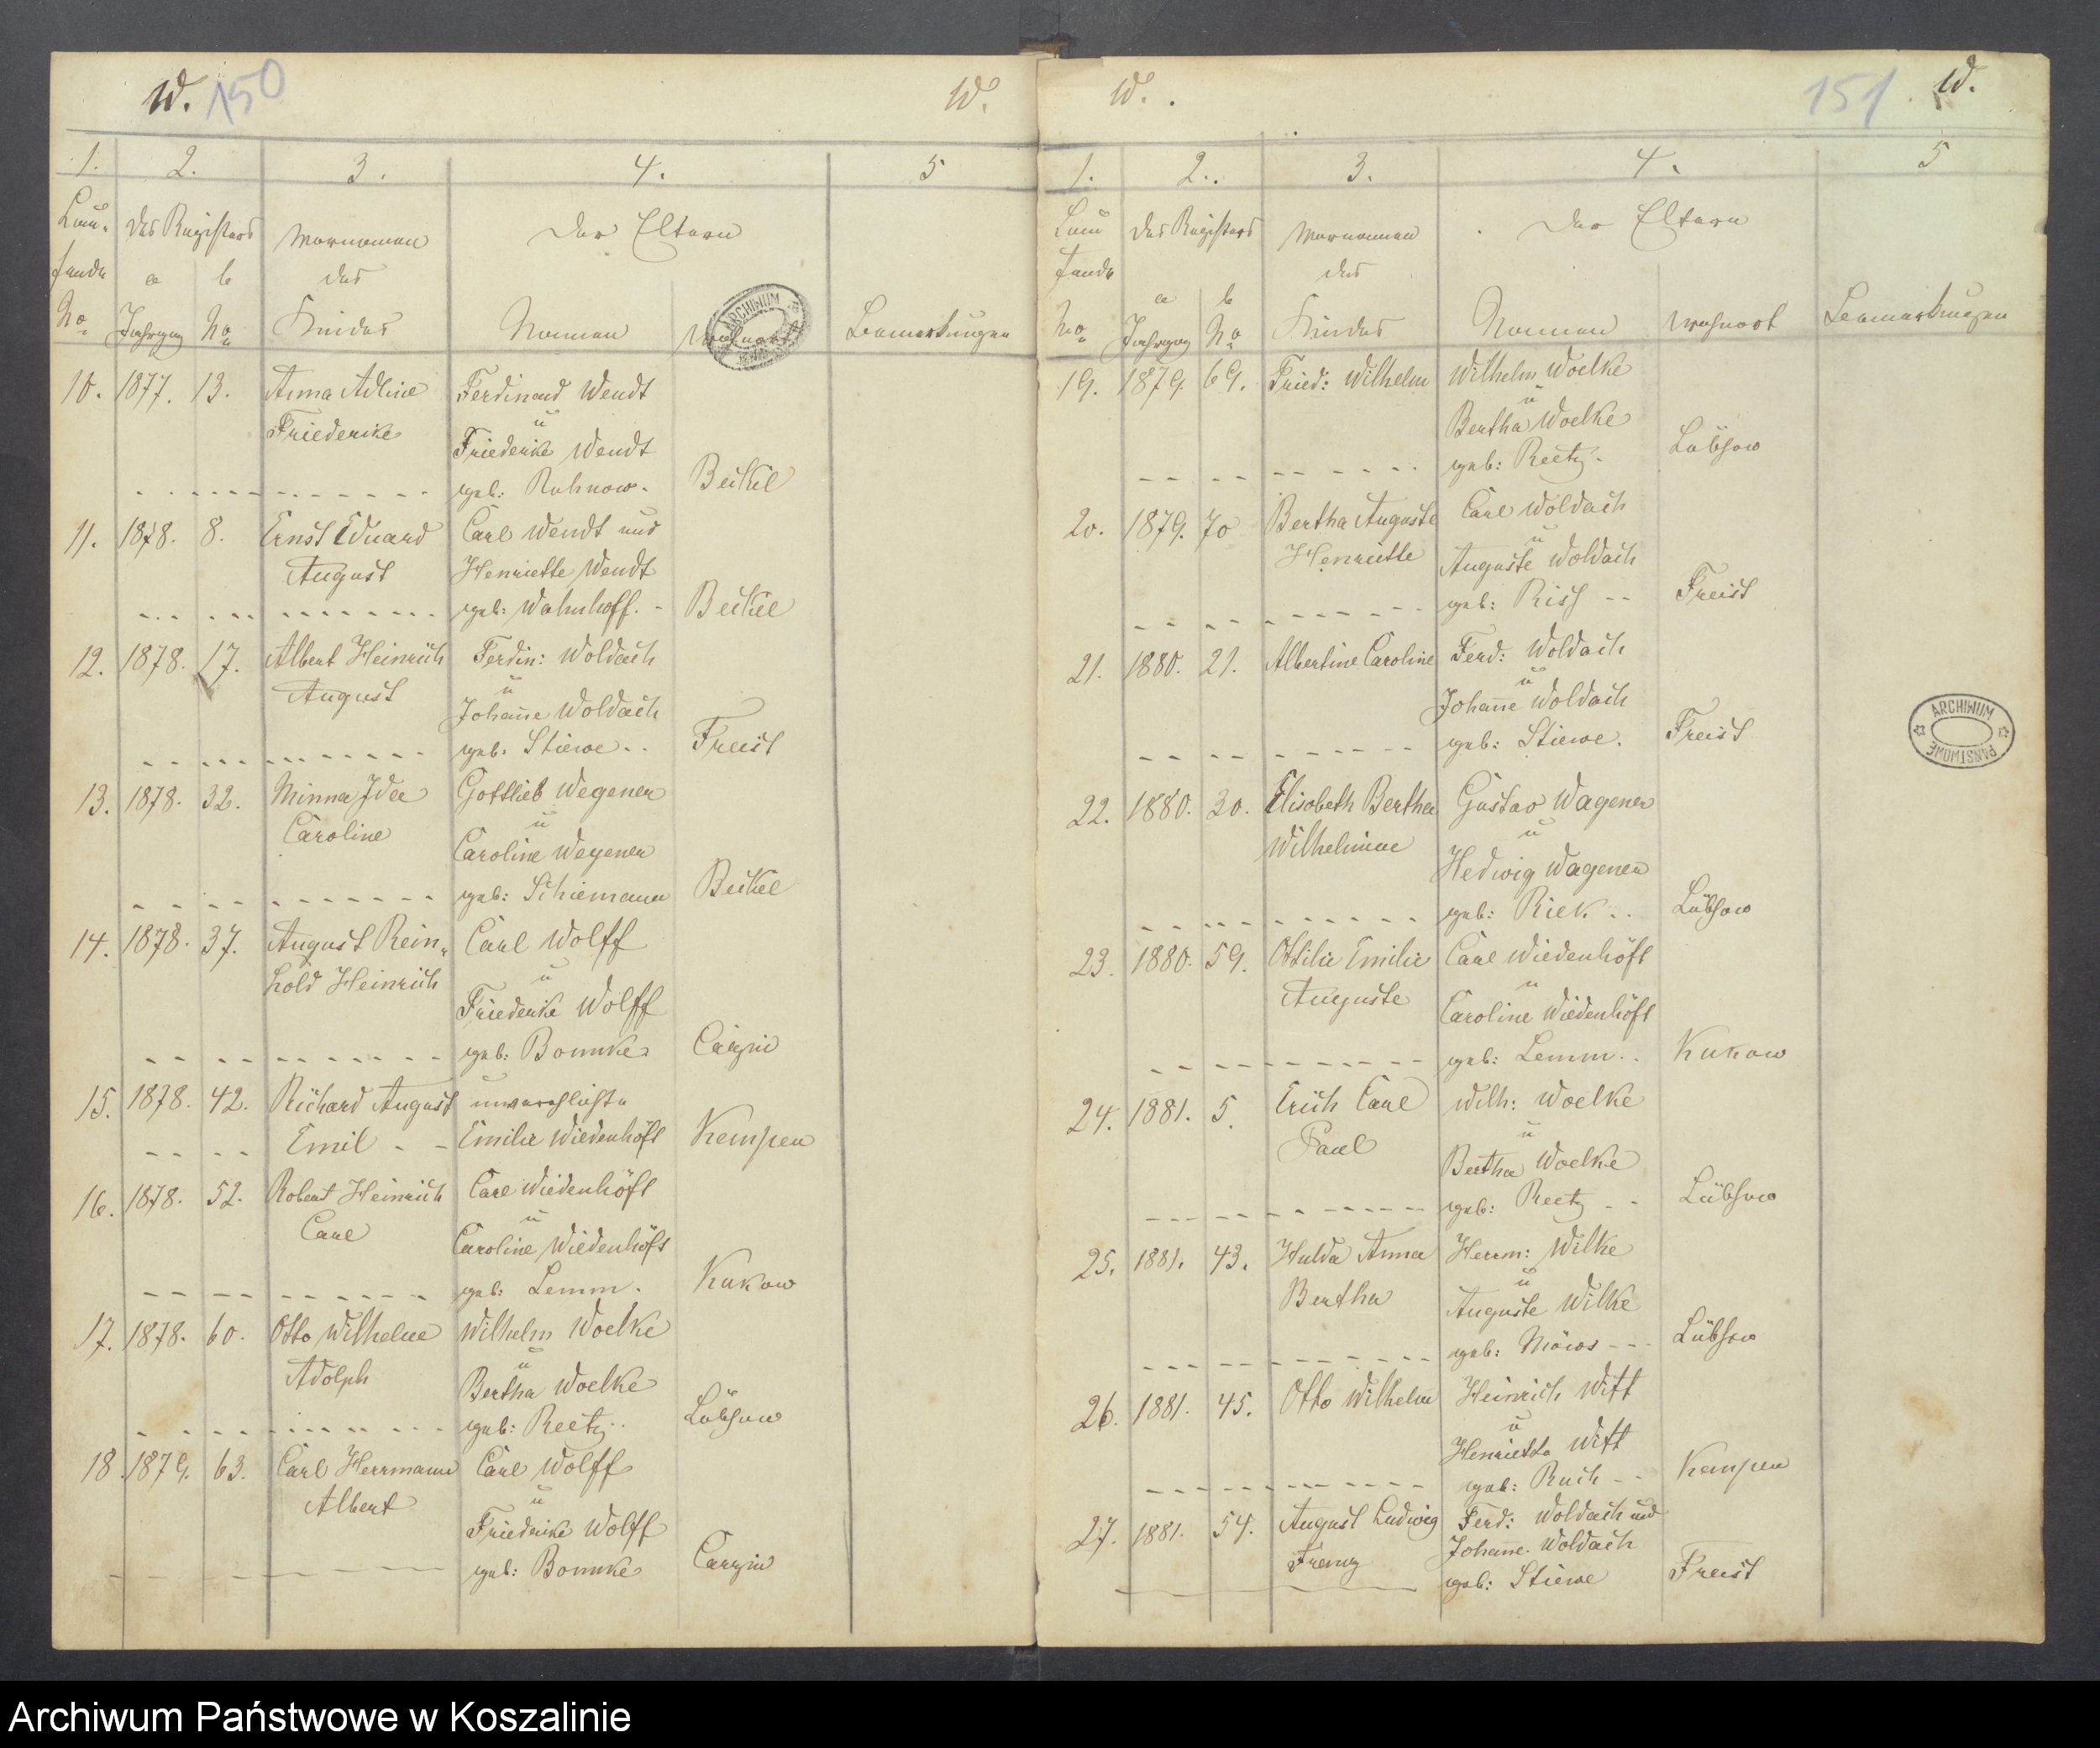 W. 150 W.
1. 2. 3. 4. 5
Lau-
fende
No
des Registers
a b
Jahrgang No
Vornamen
des
Kindes
Der Eltern
Namen Wohnort
Bemerkungen
10. 1877. 13. Anna Adline Ferdinand Wendt
Friederike u
Friederike Wendt
geb: Ruhnow. Beckel
11. 1878. 8. Ernst Eduard Carl Wendt und
August Henriette Wendt
geb: Wahnhoff. Beckel
12. 1878. 17. Albert Heinrich Ferdin: Woldach
August u
Johanne Woldach
geb. Stiewe Freist
13. 1878. 32. Minna Ida Gottlieb Wegener
Caroline u
Caroline Wegener
geb: Schiemann Beckel
14. 1878. 37. August Rein- Carl Wolff
hold Heinrich u
Friederike Wolff
geb: Bonnke Carzin
15. 1878. 42. Richard August unverehlichte
Emil Emilie Wiedenhöft Kempen
16. 1878. 52. Robert Heinrich Carl Wiedenhöft
Carl u
Caroline Wiedenhöft
geb: Lemm. Kukow
17. 1878. 60. Otto Wilhelm Wilhelm Woelke
Adolph u
Bertha Woelke
geb: Reetz Lübzow
18. 1879. 63. Carl Herrmann Carl Wolff
Albert u
Friedrike Wolff
geb: Bonnke Carzin
W. 151 W.
1. 2. 3. 4. 5
Lau
fende
No
des Registers
a b
Jahrgang No
Vornamen
des
Kindes
Der Eltern
Namen Wohnort
Bemerkungen
19. 1879. 69. Fried: Wilhelm Wilhelm Woelke
u
Bertha Woelke
geb: Reetz. Lübzow
20. 1879. 70 Bertha Auguste Carl Woldach
Henriette u
Auguste Woldach
geb: Freist
21. 1880. 21. Albertine Caroline Ferd: Woldach
u
Johanne Woldach
geb: Stiewe. Freist
22. 1880. 30. Elisabeth Bertha Gustav Wagener
Wilhelmine u
Hedwig Wagener
geb: Riek Lübzow
23. 1880. 59. Ottilie Emilie Carl Wiedenhöft
Auguste u
Caroline Wiedenhöft
geb: Lemm Kukow
24. 1881. 5. Erich Carl Wilh: Woelke
Paul u
Bertha Woelke
geb: Reetz Lübzow
25. 1881. 43. Hulda Anna Herrm: Wilke
Bertha u
Auguste Wilke
geb: Möws Lübzow
26. 1881. 45. Otto Wilhelm Heinrich Witt
u
Henriette Witt
geb: Ruch Kempen
27. 1881. 54. August Ludwig Ferd: Woldach und
Franz Johanne Woldach
geb: Stiewe Freist
ARCHIWUM
PAŃSTWOWE
Archiwum Państwowe w Koszalinie